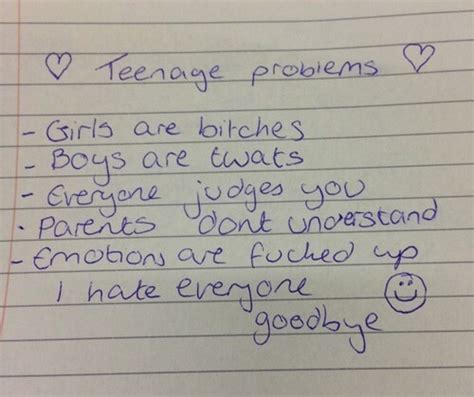 ♡ Teenage problems ♡
- Girls are bitches
- Boys are twats
- Everyone judges you
- Parents dont understand
- Emotions are fucked up
I hate everyone ☺
goodbye